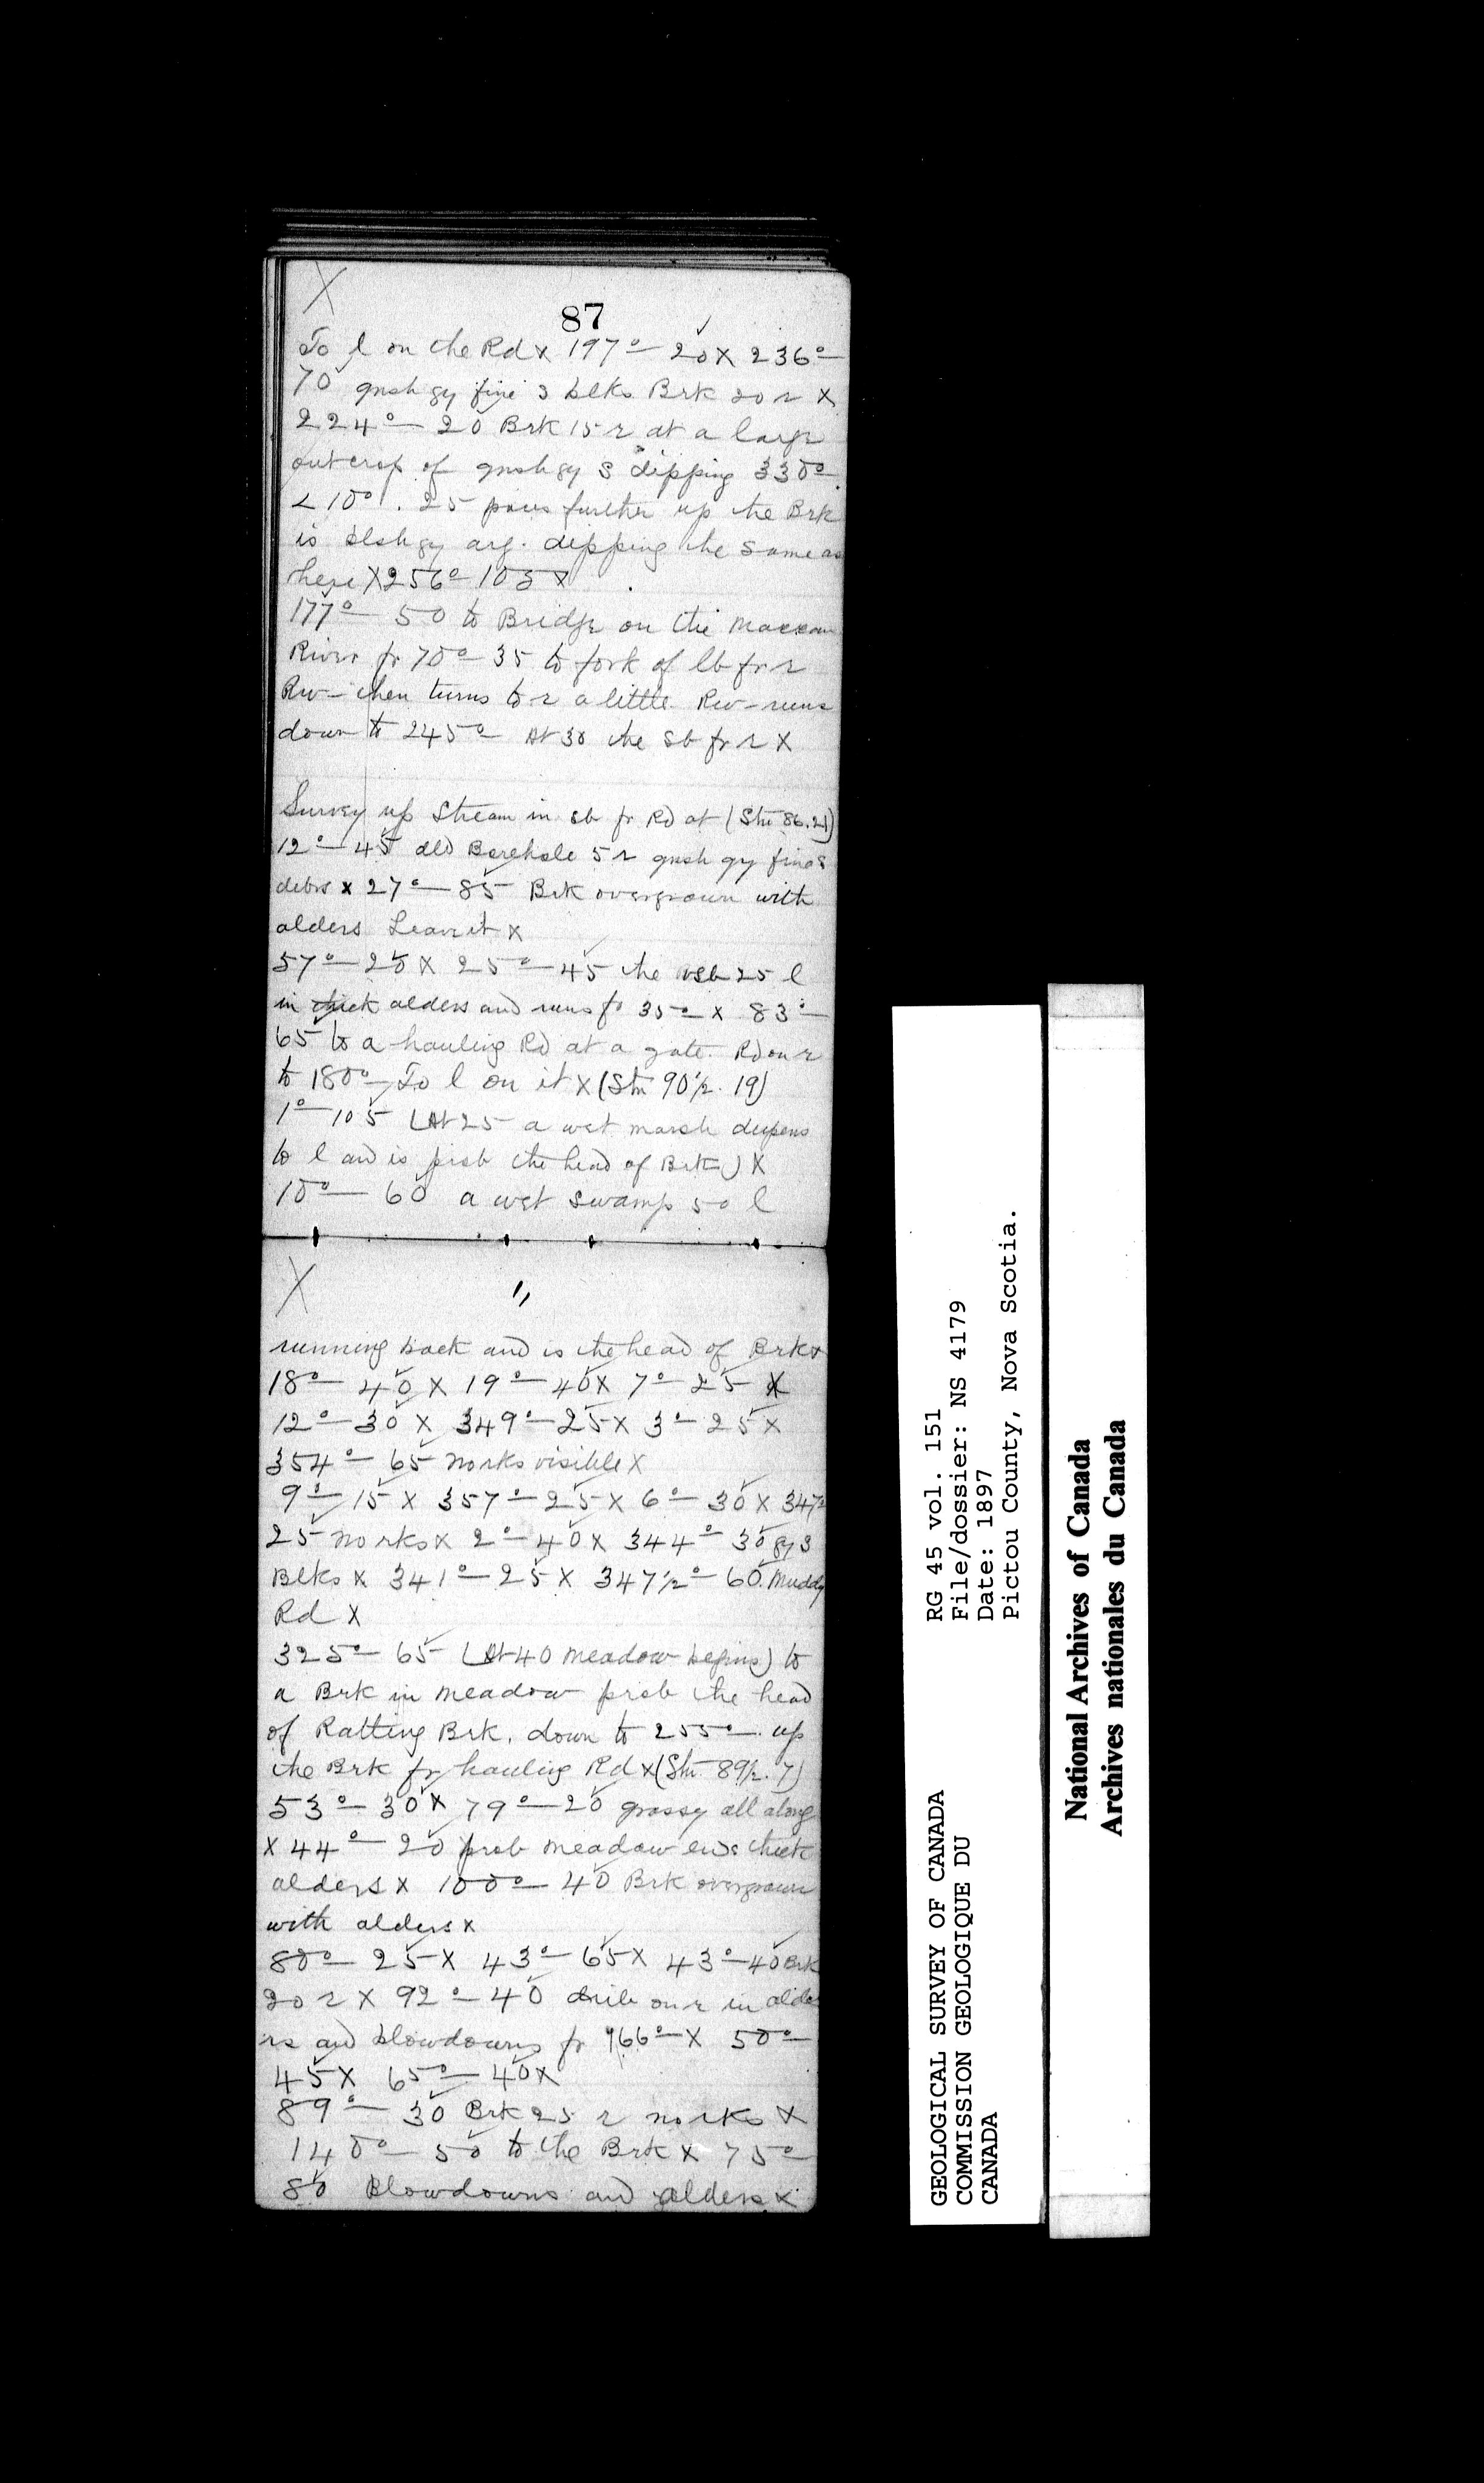 X
87
To l on the Rd x 197° — 20 x 236° —
70 gnsh gy fine S blks Brk 20 r x
224° — 20 Brk 15 r at a large
outcrop of gnsh gy S dipping 330° —
< 10°. 25 paces further up the Brk
is blsh gy arg. dipping the same as
here x 256° — 105 x
177° — 50 to Bridge on the Maccan
River fr 70° — 35 to fork of lb fr r
Riv — then turns to r a little. Riv — runs
down to 245° — At 30 the sb fr r x
Survey up Stream in sb fr Rd at (Stn 86.21)
12° — 45 old Borehole 5 r gnsh gy fine S
debrs x 27° — 85 Brk overgrown with
alders Leave it x
57° — 20 x 25° — 45 the 25 l
in thick alders and runs fr 35° — x 83° —
65 to a hauling Rd at a gate. Rd on r
to 180° — To l on it x (Stn 90½. 19)
1° — 105 (At 25 a wet marsh deepens
to l and is prob the head of Brk) x
10° — 60 a wet swamp 50 l
X
"
running back and is the head of Brk x
18° — 40 x 19° — 40 x 7° — 25 x
12° — 30 x 349° — 25 x 3° — 25 x
354° — 65 no rks visible x
9° — 15 x 357° — 25 x 6° — 30 x 347° —
25 no rks x 2° — 40 x 344° — 30 gy S
Blks x 341° — 25 x 347½° — 60. Muddy
Rd x
325° — 65 (At 40 meadow begins) to
a Brk in meadow prob the head
of Ratting Brk. down to 255° — up
the Brk fr hauling Rd x (Stn 89½. 7)
53° — 30 x 79° — 20 grassy all along
x 44° — 20 prob meadow ends thick
alders x 100° — 40 Brk overgrown
with alders x
80° — 25 x 43° — 65 x 43° — 40 Brk
20 r x 92° — 40 on r in alde
rs and blowdowns fr 166° — x 50° —
45 x 65° — 40 x
89° — 30 Brk 25 r no rks x
140° — 50 to the Brk x 75° —
80 Blowdowns and alders x
GEOLOGICAL SURVEY OF CANADA
COMMISSION GEOLOGIQUE DU
CANADA
RG 45 vol. 151
File/dossier: NS 4179
Date: 1897
Pictou County, Nova Scotia.
National Archives of Canada
Archives nationales du Canada